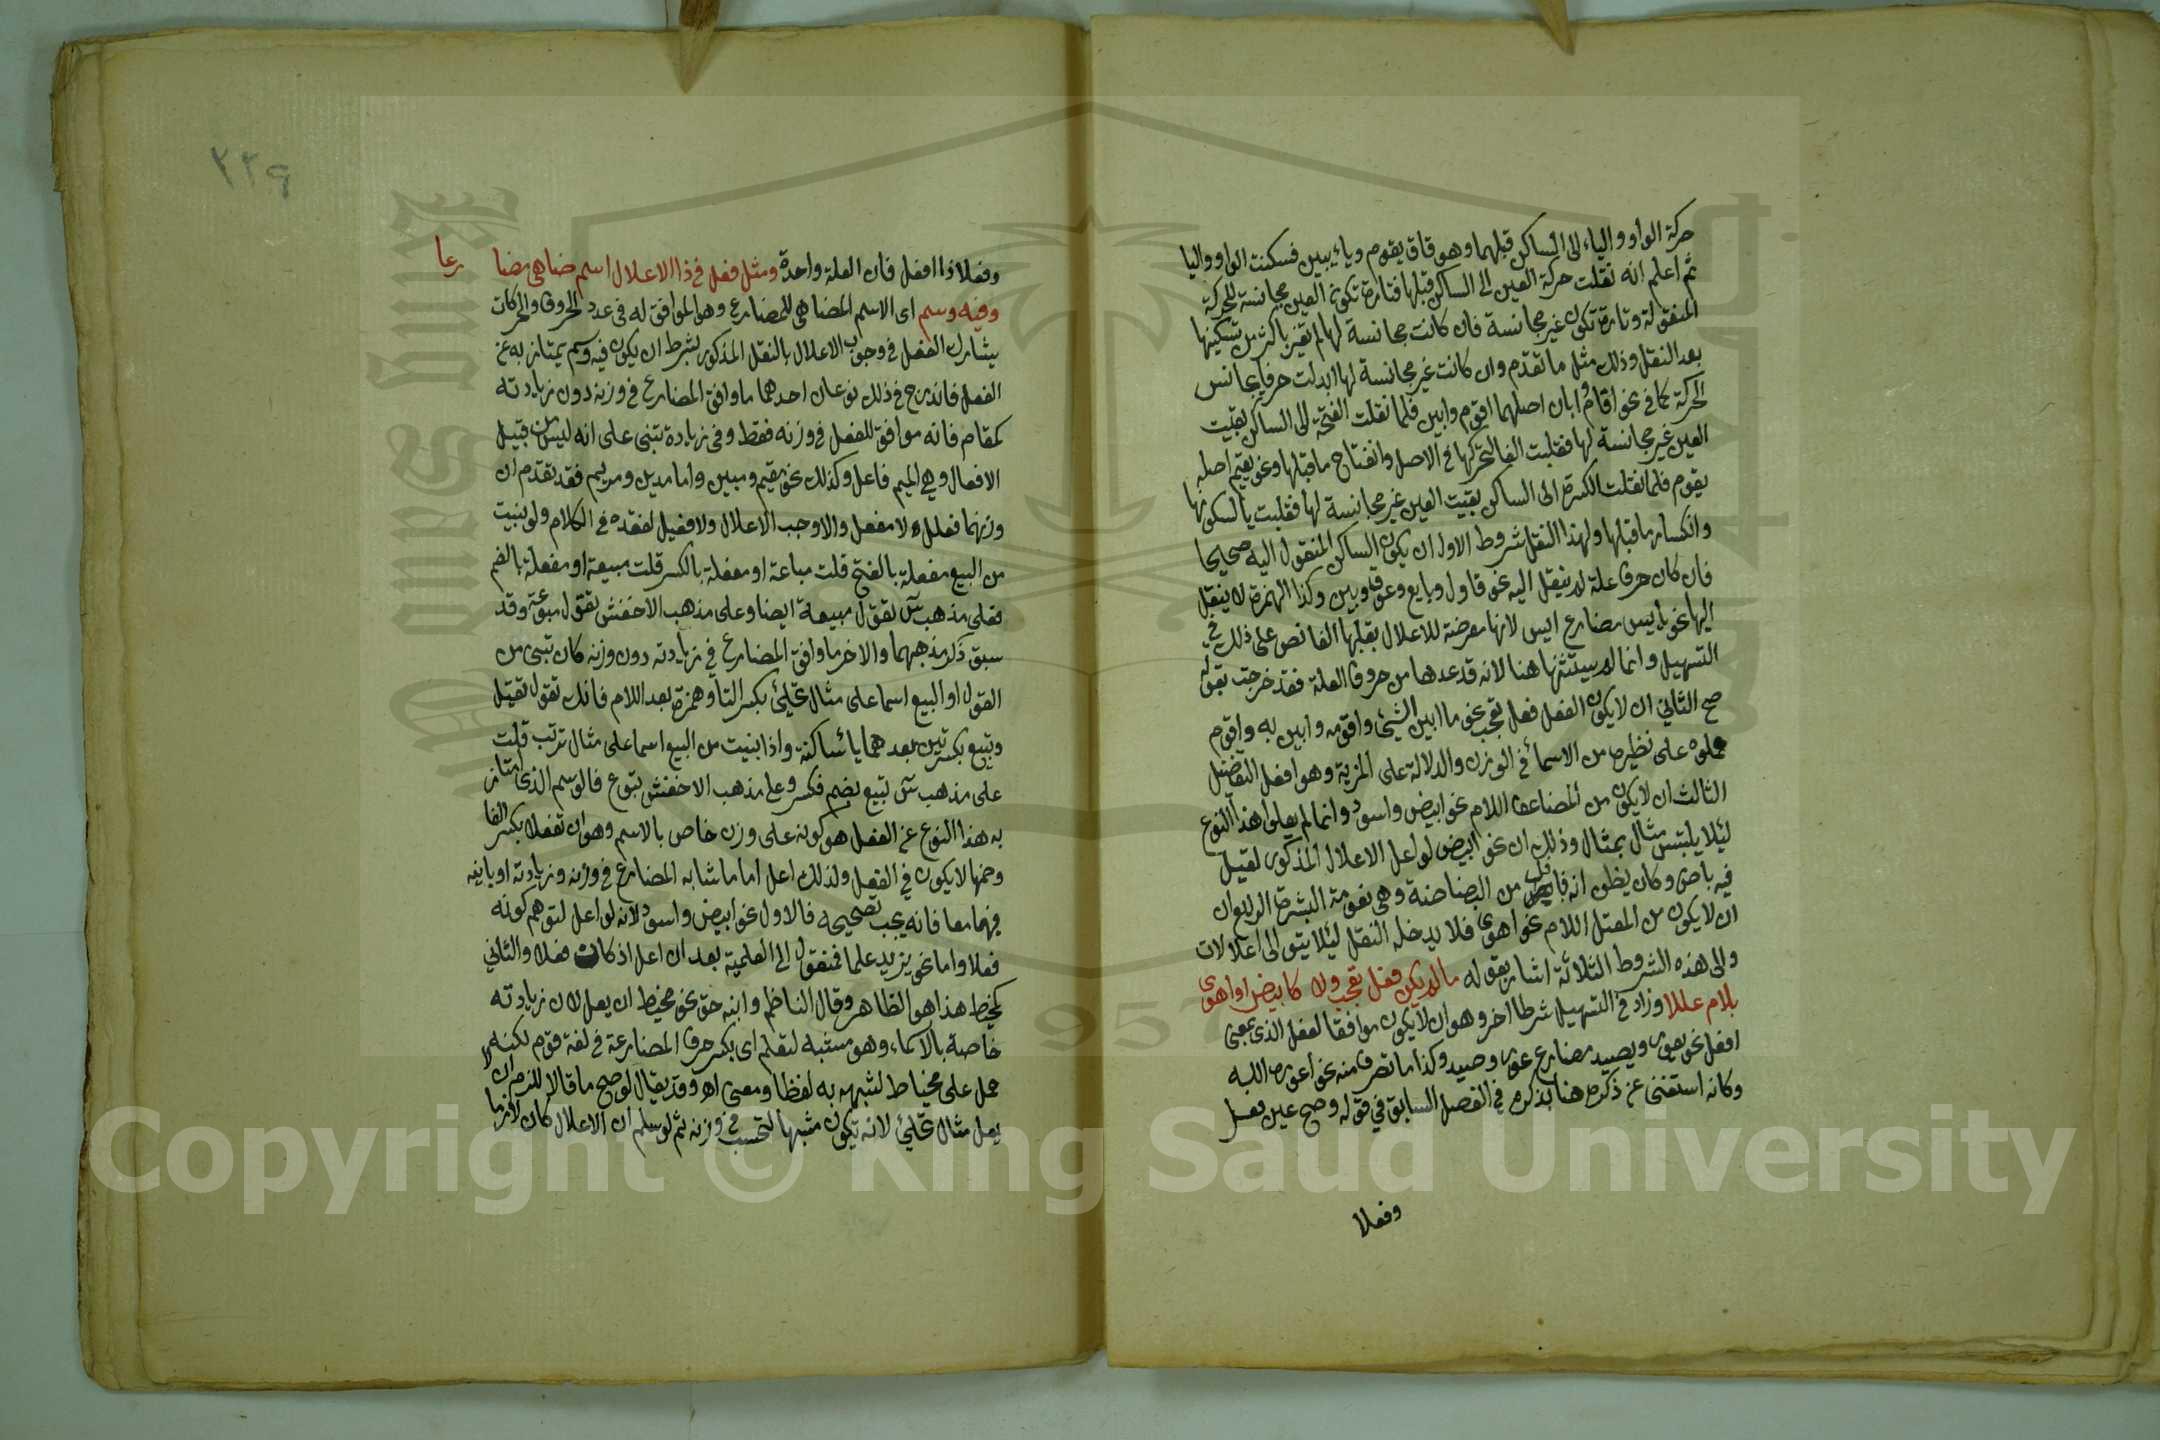 حركة الواو والياء الى الساكن قبلهما وهو قاف يقوم وباء يبين فسكنت الواو واليا
ثم اعلم انه نقلت حركة العين الى الساكن قبلها فتارة تكون العين مجانسة للحركة
المنقولة وتارة تكون غير مجانسة فان كانت مجانسة لها لم تغير باكثر من تسكينها
بعد النقل وذلك مثل ما تقدم وان كانت غير مجانسة لها ابدلت حرفا يجانس
الحركة كما في نحو اقام وابان اصلهما اقوم وابين فلما نقلت الفتحة الى الساكن بقيت
العين غير مجانسة لها فقلبت الفا لتحركها في الاصل وانفتاح ما قبلها ونحو يقيم اصله
يقوم فلما نقلت الكسرة الى الساكن بقيت العين غير مجانسة لها فقلبت يا لسكونها
وانكسار ما قبلها ولهذا النقل شروط الاول ان يكون الساكن المنقول اليه صحيحا
فان كان حرف علة لم ينقل اليه نحو قاول وبايع وعوق وبين وكذا الهمزة لا ينقل
اليها نحو يايس مضارع ايس لانها معرضة للاعلال بقلبها الفا نص على ذلك في
التسهيل وانما لم يستثنها هنا لانه قد عدها من حروف العلة فقد خرجت بقوله
صح الثاني ان لا يكون الفعل فعل تعجب نحو ما ابين الشيئ واقومه وابين به واقوم
حملوه على نظيره من الاسما في الوزن والدلالة على المزية وهو افعل التفضيل
الثالث ان لا يكون من المضاعف اللام نحو ابيض واسود وانما لم يعلوا هذا النوع
لئلا يلتبس مثال بمثال وذلك ان نحو ابيض لو اعل الاعلال المذكور لقيل
فيه باض وكان يظن انه فاعل من البضاضة وهي نعومة البشرة الرابع ان
ان لا يكون من المعتل اللام نحو اهوى فلا يدخله النقل لئلا يتوالى اعلالات
والى هذه الشروط الثلاثة اشار بقوله ما لم يكن فعل تعجب ولا كابيض او اهوى
بلام عللا وزاد في التسهيل شرطا اخر وهو ان لا يكون موافقا لفعل الذي بمعنى
افعل نحو يعور ويصيد مضارع عور وصيد وكذا ما تصرف منه نحو اعوره الله
وكانه استغنى عن ذكره هنا بذكره في الفصل السابق في قوله وصح عين فعل
وفعلا
٢٢٩
وفعلا ذا افعل فان العلة واحدة ومثل فعل في ذا الاعلال اسم ضاهى مضارعا
وفيه وسم اى الاسم المضاهي للمضارع وهو الموافق له في عدد الحروف والحركات
يشارك الفعل في وجوب الاعلال بالنقل المذكور بشرط ان يكون فيه وسم يمتاز به عن
الفعل فاندرج في ذلك نوعان احدهما ما وافق المضارع في وزنه دون زيادته
كمقام فانه موافق للفعل في وزنه فقط وفي زيادة تنبى على انه ليس من قبيل
الافعال وهي الميم فاعل وكذلك نحو مقيم ومبين واما مدين ومريم فقد تقدم ان
وزنهما فعلل لا مفعل والا وجب الاعلال ولا فعيل لفقده في الكلام ولو بنيت
من البيع مفعلة بالفتح قلت مباعة او مفعلة بالكسر قلت مبيعة او مفعلة بالضم
فعلى مذهب س تقول مبيعة ايضا وعلى مذهب الاخفش تقول مبوعة وقد
سبق ذكر مذهبهما والاخر ما وافق المضارع في زيادته دون وزنه كان تبنى من
القول او البيع اسما على مثال تحلئ بكسر التا وهمزة بعد اللام فانك تقول تقيل
وتبيع بكسرتين بعدهما يا ساكنة واذا بنيت من البيع اسما على مثال ترتب قلت
على مذهب س تبيع بضم فكسر وعلى مذهب الاخفش تبوع فالوسم الذي امتاز
به هذا النوع عن الفعل هو كونه على وزن خاص بالاسم وهو ان تفعلا بكسر التا
وضمها لا يكون في الفعل ولذلك اعل اما ما شابه المضارع في وزنه وزيادته او باينه
فيهما معا فانه يجب تصحيحه فالاول نحو ابيض واسود لانه لو اعل لتوهم كونه
فعلا واما نحو يزيد علما فمنقول الى العلمية بعد ان اعل اذ كان فعلا والثاني
كمخيط هذا هو الظاهر وقال الناظم وابنه حق نحو مخيط ان يعل لان زيادته
خاصة بالاسماء وهو مشبه لتعلم اى بكسر حرف المضارعة في لغة قوم لكنه
حمل على مخياط لشبهه به لفظا ومعنى اه وقد يقال لو صح ما قالا للزم ان لا
يعل مثال تحلئ لانه تيكون مشبها لتحسب في وزنه ثم لو سلم ان الاعلال كان لازما